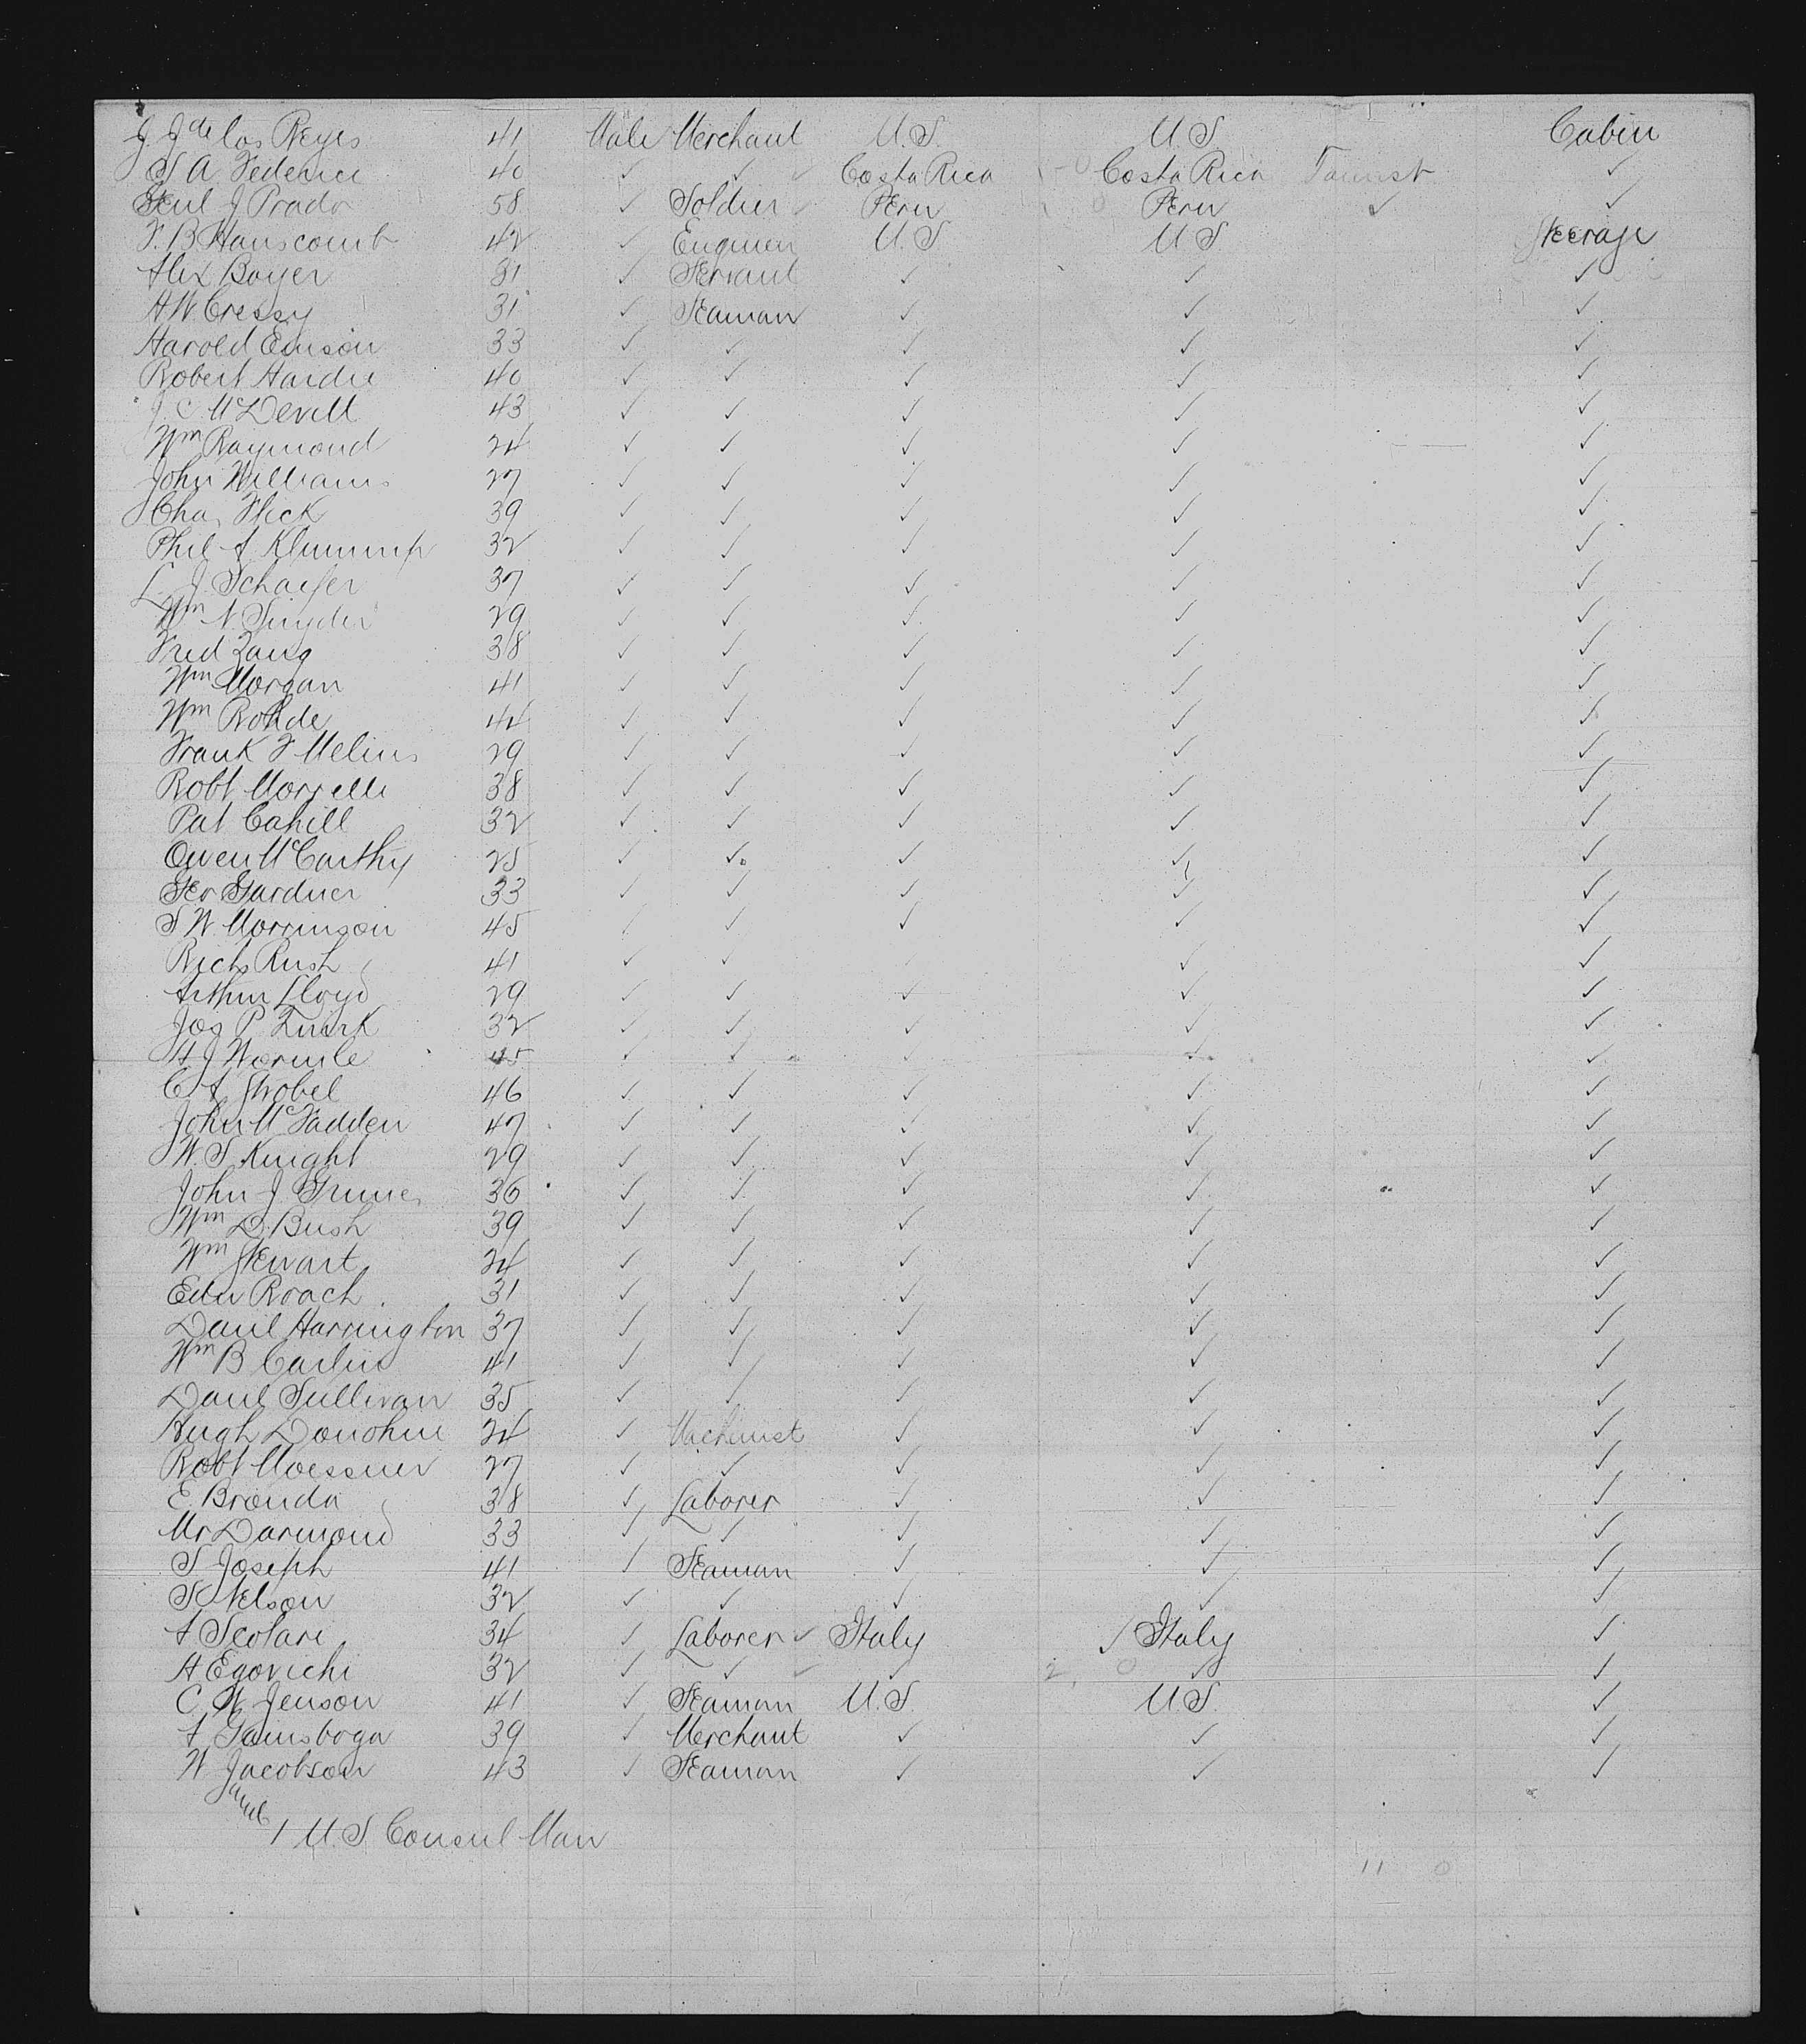 J. J de los Reyes 41 Male Merchant U.S. U.S. Cabin
S A Federici 40 ✓ ✓ Costa Rica Costa Rica Tourist ✓
Genl J Prado 58 ✓ Soldier Peru Peru ✓ ✓
F. B Hanscomb 42 ✓ Engineer U.S. U.S. Steerage
Alex Boyer 31 ✓ Servant ✓ ✓ ✓
A W Cressy 31 ✓ Seaman ✓ ✓ ✓
Harold 33 ✓ ✓ ✓ ✓ ✓
Robert Hardie 40 ✓ ✓ ✓ ✓ ✓
J. C McDevitt 43 ✓ ✓ ✓ ✓ ✓
Wm Raymond 24 ✓ ✓ ✓ ✓ ✓
John Williams 27 ✓ ✓ ✓ ✓ ✓
Chas Flick 39 ✓ ✓ ✓ ✓ ✓
Phil A Klummp 32 ✓ ✓ ✓ ✓ ✓
L. J. Schaefer 37 ✓ ✓ ✓ ✓ ✓
Wm N Snyder 29 ✓ ✓ ✓ ✓ ✓
Fred Zang 38 ✓ ✓ ✓ ✓ ✓
Wm Morgan 41 ✓ ✓ ✓ ✓ ✓
Wm Rohde 44 ✓ ✓ ✓ ✓ ✓
Frank F Melius 29 ✓ ✓ ✓ ✓ ✓
Robt Morrelli 38 ✓ ✓ ✓ ✓ ✓
Pat Cahill 32 ✓ ✓ ✓ ✓ ✓
Owen McCarthy 25 ✓ ✓ ✓ ✓ ✓
Geo Gardner 33 ✓ ✓ ✓ ✓ ✓
S W Morrinson 45 ✓ ✓ ✓ ✓ ✓
Richd Rush 41 ✓ ✓ ✓ ✓
Arthur Lloyd 29 ✓ ✓ ✓ ✓ ✓
Jos P. Quirk 32 ✓ ✓ ✓ ✓ ✓
H J Wormle 45 ✓ ✓ ✓ ✓ ✓
C A Strobel 46 ✓ ✓ ✓ ✓ ✓
John McFadden 47 ✓ ✓ ✓ ✓ ✓
W. S. Knight 29 ✓ ✓ ✓ ✓ ✓
John J. Grimes 36 ✓ ✓ ✓ ✓ ✓
Wm D. Bush 39 ✓ ✓ ✓ ✓ ✓
Wm Stewart 24 ✓ ✓ ✓ ✓ ✓
Edw Roach 31 ✓ ✓ ✓ ✓ ✓
Danl Harrington 37 ✓ ✓ ✓ ✓ ✓
Wm B Carlin 41 ✓ ✓ ✓ ✓ ✓
Danl Sullivan 35 ✓ ✓ ✓ ✓ ✓
Hugh Donohue 24 ✓ Machinist ✓ ✓ ✓
Robt Moessner 27 ✓ ✓ ✓ ✓ ✓
E. Bronda 38 ✓ Laborer ✓ ✓ ✓
Mr Darmond 33 ✓ ✓ ✓ ✓ ✓
S Joseph 41 ✓ Seaman ✓ ✓ ✓
S Nelson 32 ✓ ✓ ✓ ✓ ✓
A Scolari 34 ✓ Laborer ✓ Italy ✓ Italy ✓
A Egovichi 32 ✓ ✓ ✓ ✓ ✓
C. W. Jenson 41 ✓ Seaman U.S. U.S. ✓
A Gainsboga 39 ✓ Merchant ✓ ✓ ✓
W Jacobson 43 ✓ Seaman ✓ ✓ ✓
1 U.S. Consul Man
11 0